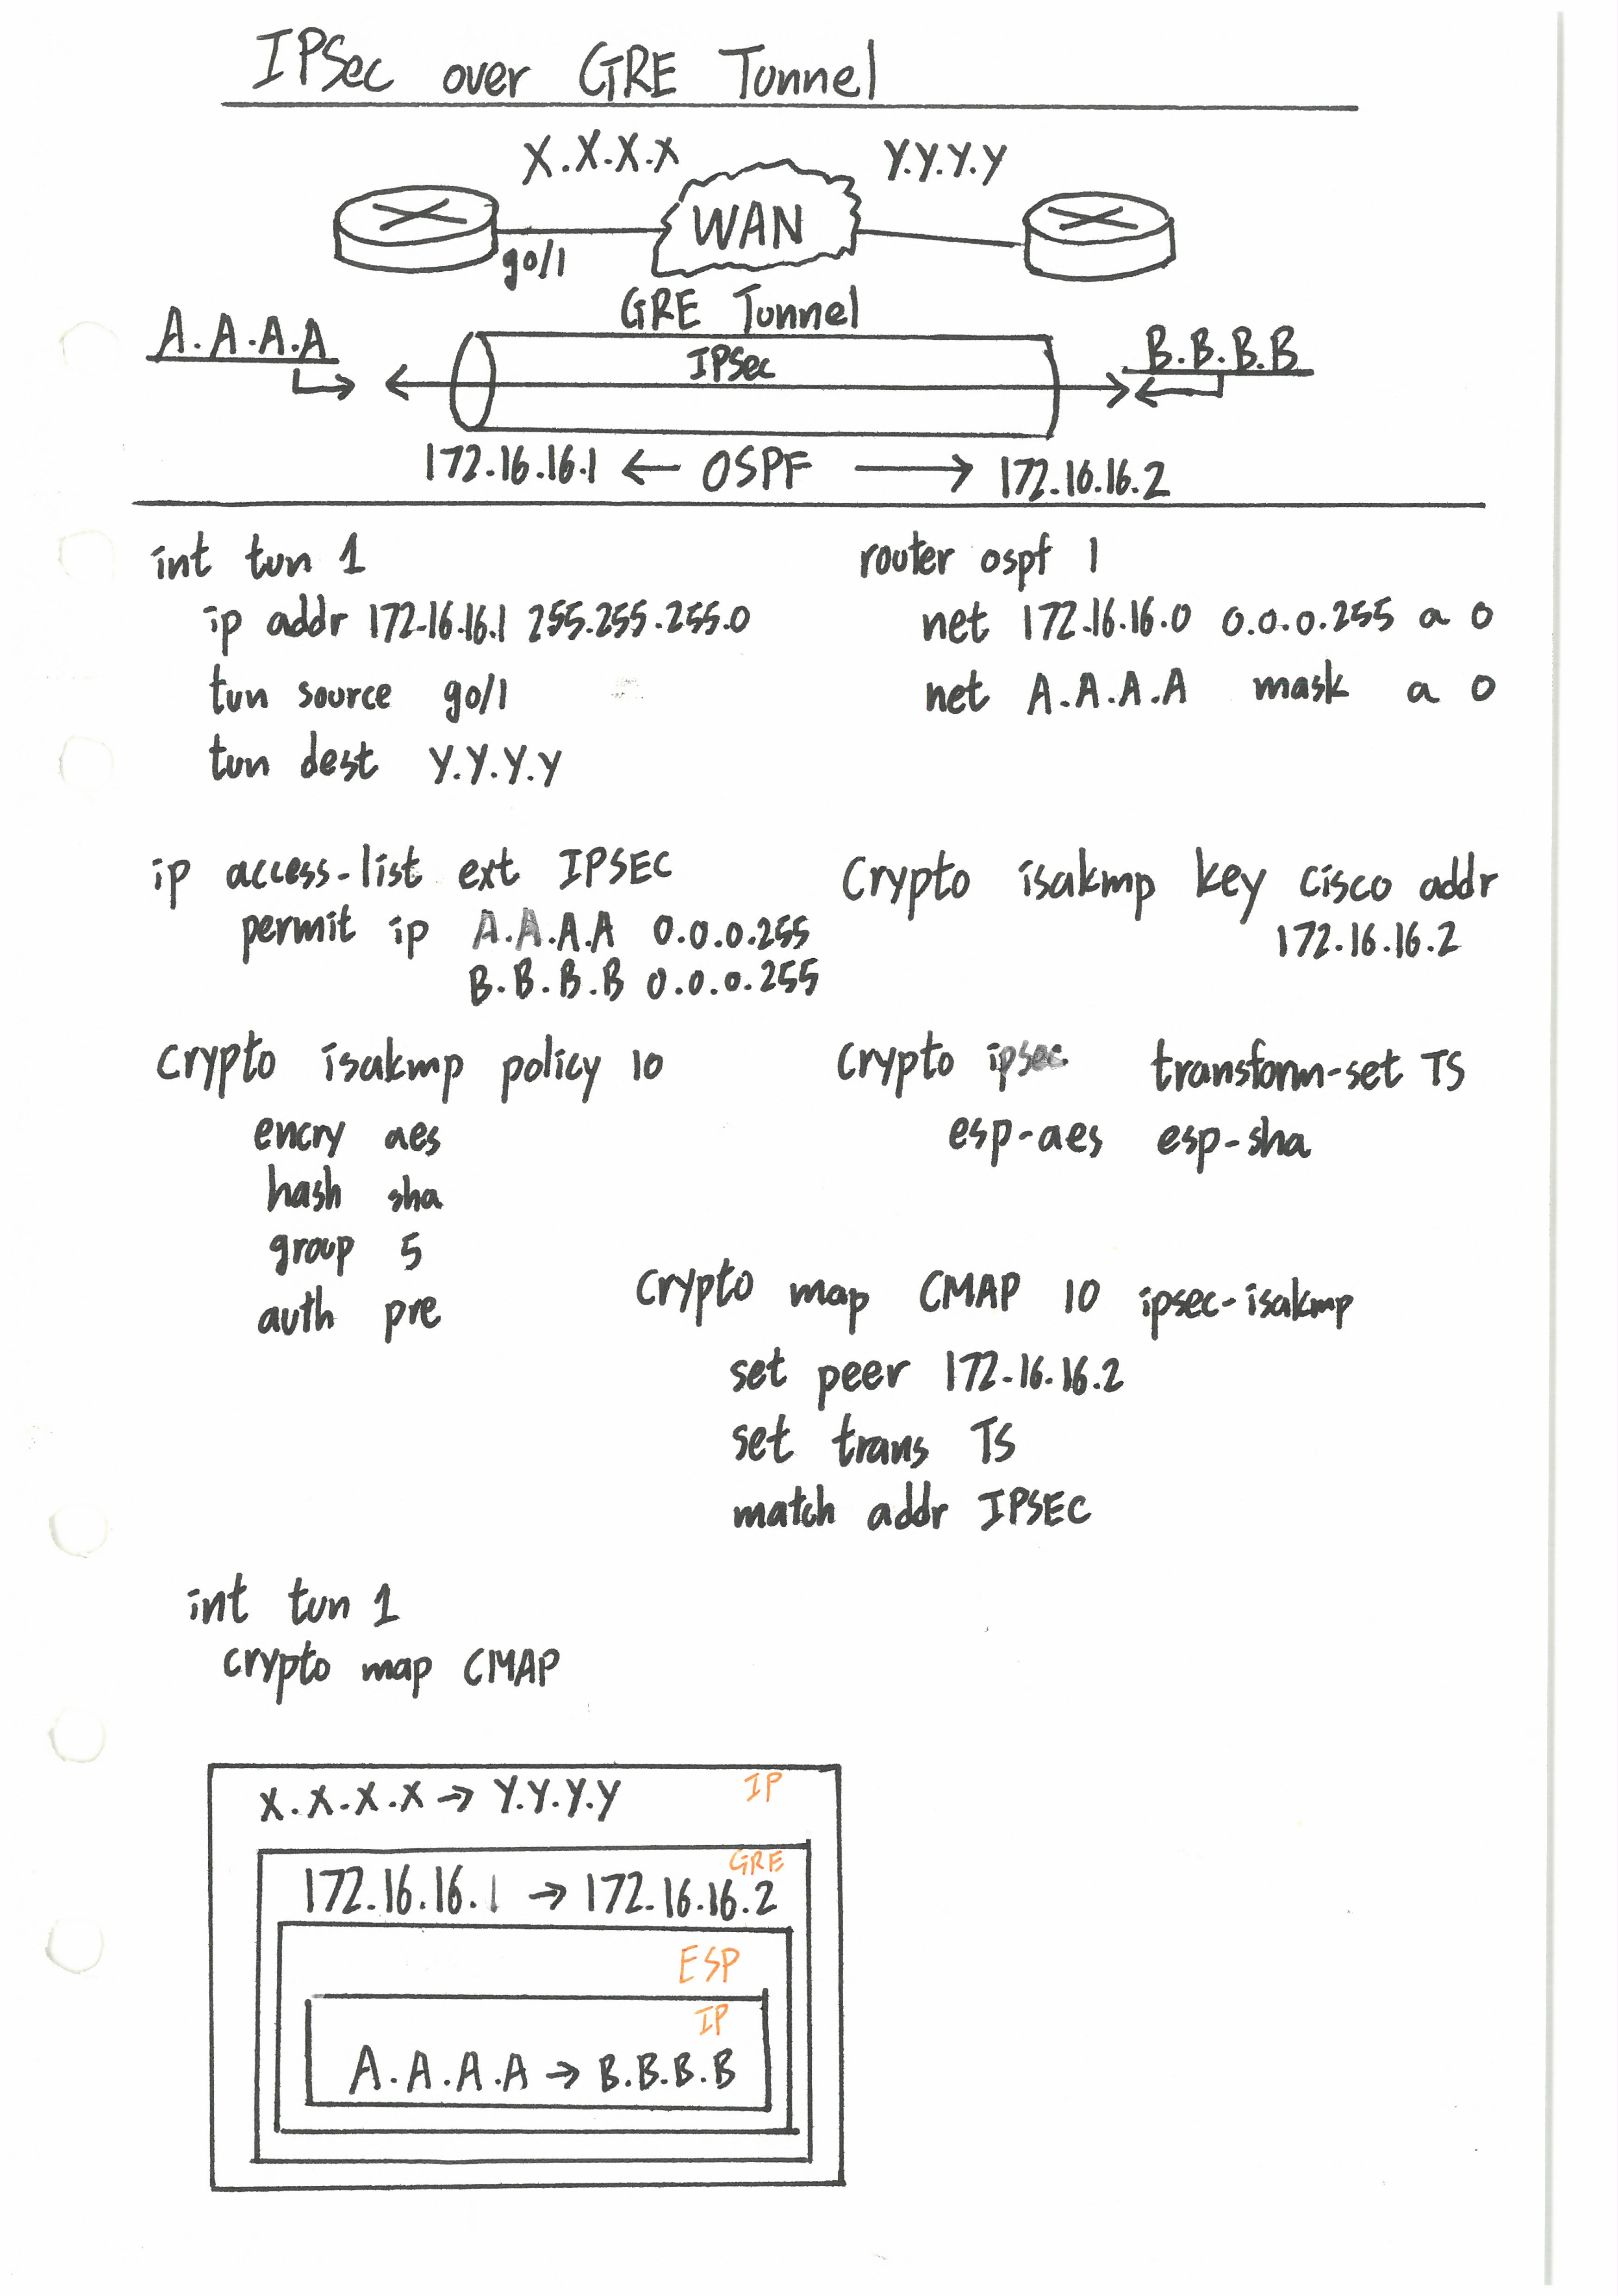 IPSec over GRE Tunnel
X.X.X.X
Y.Y.Y.Y
WAN
g0/1
GRE Tunnel
A.A.A.A
IPSec
B.B.B.B
172.16.16.1 ← OSPF → 172.16.16.2
int tun 1
ip addr 172.16.16.1 255.255.255.0
tun source g0/1
tun dest Y.Y.Y.Y
router ospf 1
net 172.16.16.0 0.0.0.255 a 0
net A.A.A.A mask a 0
ip access-list ext IPSEC
permit ip A.A.A.A 0.0.0.255
B.B.B.B 0.0.0.255
Crypto isakmp key cisco addr
172.16.16.2
crypto isakmp policy 10
encry aes
hash sha
group 5
auth pre
crypto ipsec transform-set TS
esp-aes esp-sha
crypto map CMAP 10 ipsec-isakmp
set peer 172.16.16.2
set trans TS
match addr IPSEC
int tun 1
crypto map CMAP
X.X.X.X → Y.Y.Y.Y IP
GRE
172.16.16.1 → 172.16.16.2
ESP
IP
A.A.A.A → B.B.B.B